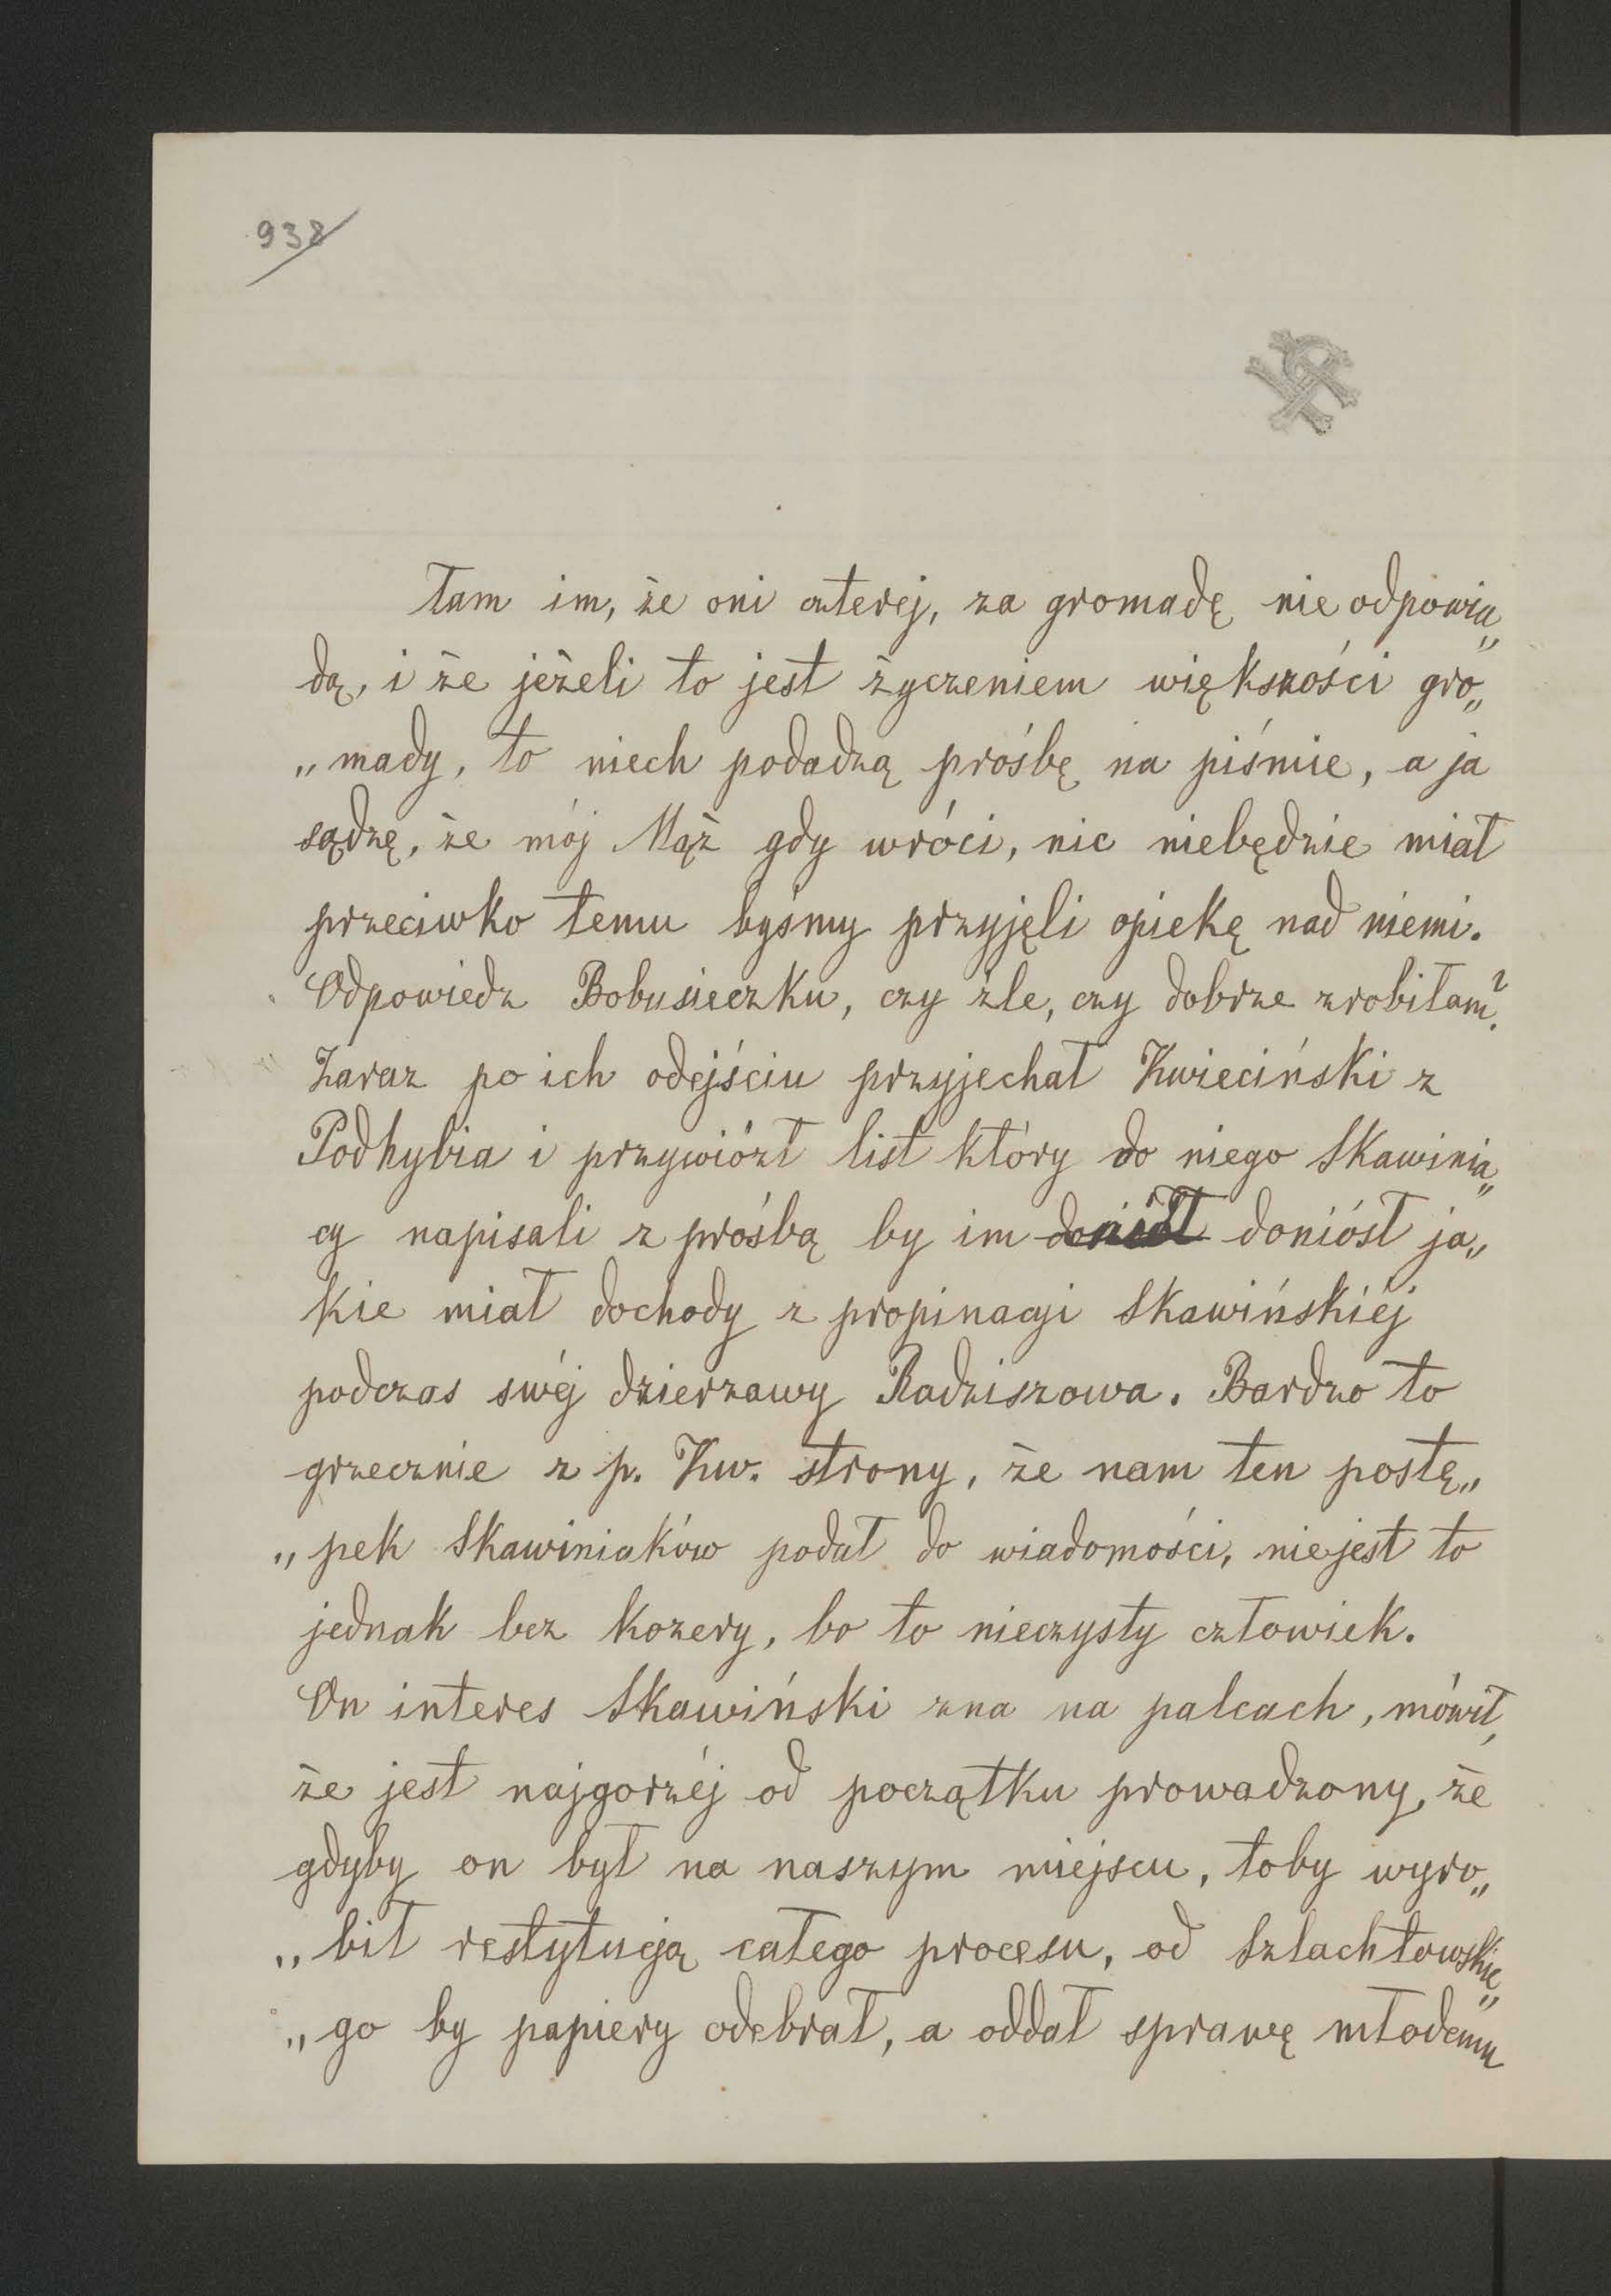 938
łam im, że oni czterej, za gromadę nie odpowia„
dą, i że jeżeli to jest życzeniem większości gro„
„mady, to niech podadzą prośbę na piśmie, a ja
sądzę, że mój Mąż gdy wróci, nic niebędzie miał
przeciwko temu byśmy przyjęli opiekę nad niemi.
Odpowiedz Bobusieczku, czy źle, czy dobrze zrobiłam?
Zaraz po ich odejściu przyjechał Kwieciński z
Podhybia i przywiózł list który do niego Skawinia„
cy napisali z prośbą by im doniósł ja„
kie miał dochody z propinacyi Skawińskiéj
podczas swéj dzierzawy Radziszowa. Bardzo to
grzecznie z p. Kw. strony, że nam ten postę„
„pek Skawiniaków podał do wiadomości, niejest to
jednak bez kozery, bo to nieczysty człowiek.
On interes Skawiński zna na palcach, mówił,
że jest najgorzéj od początku prowadzony, że
gdyby on był na naszym miejscu, toby wyro„
„bił restytucją całego procesu, od Szlachtowskie„
„go by papiery odebrał, a oddał sprawę młodemu